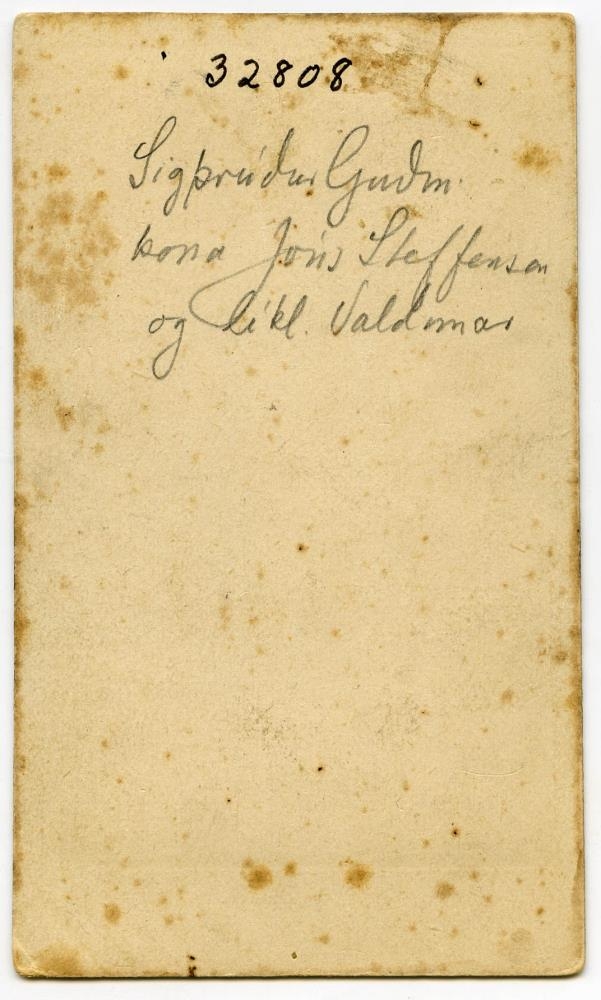 32808
Sigþrúður Guðm.
kona Jóns Steffensen
og líkl. Valdimar